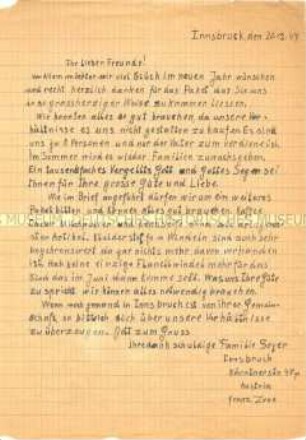 Innsbruck den 20.12.49
Ihr lieben Freunde!
Vor allem möchten wir viel Glück im neuen Jahr wünschen
und recht herzlich danken für das Paket das Sie uns
in so grossherziger Weise zukommen liessen.
Wir konnten alles so gut brauchen, da unsere Ver-
hältnisse es uns nicht gestatten zu kaufen Es sind
uns ja 8 Personen und nur der Vater zum verdienen ist.
Im Sommer wird es wieder Familien zuwachs geben.
Ein tausendfaches Vergelts Gott und Gottes Segen sei
Ihnen für Ihre grosse Güte und Liebe.
Wie im Brief angeführt dürfen wir um ein weiteres
Paket bitten und können alles gut brauchen. Kaffee
Zucker
ten Artikel. Kleider stoffe u Windeln sind auch sehr
da gar nichts mehr davon vorhanden
ist. Hab keine einzige Flanellwindel mehr für das
Kind das im Juni dann kommen soll. Was uns Ihre Güte
zu spricht wir können alles notwendig brauchen.
Wenn mal jemand in Innsbruck ist von ihrer Gemein-
schaft, so bitte sich über unsere Verhältnisse
zu überzeugen. Gott zum Gruss
Ihre dankschuldige Familie Beyer
Innsbruck
Austria
franz. Zone